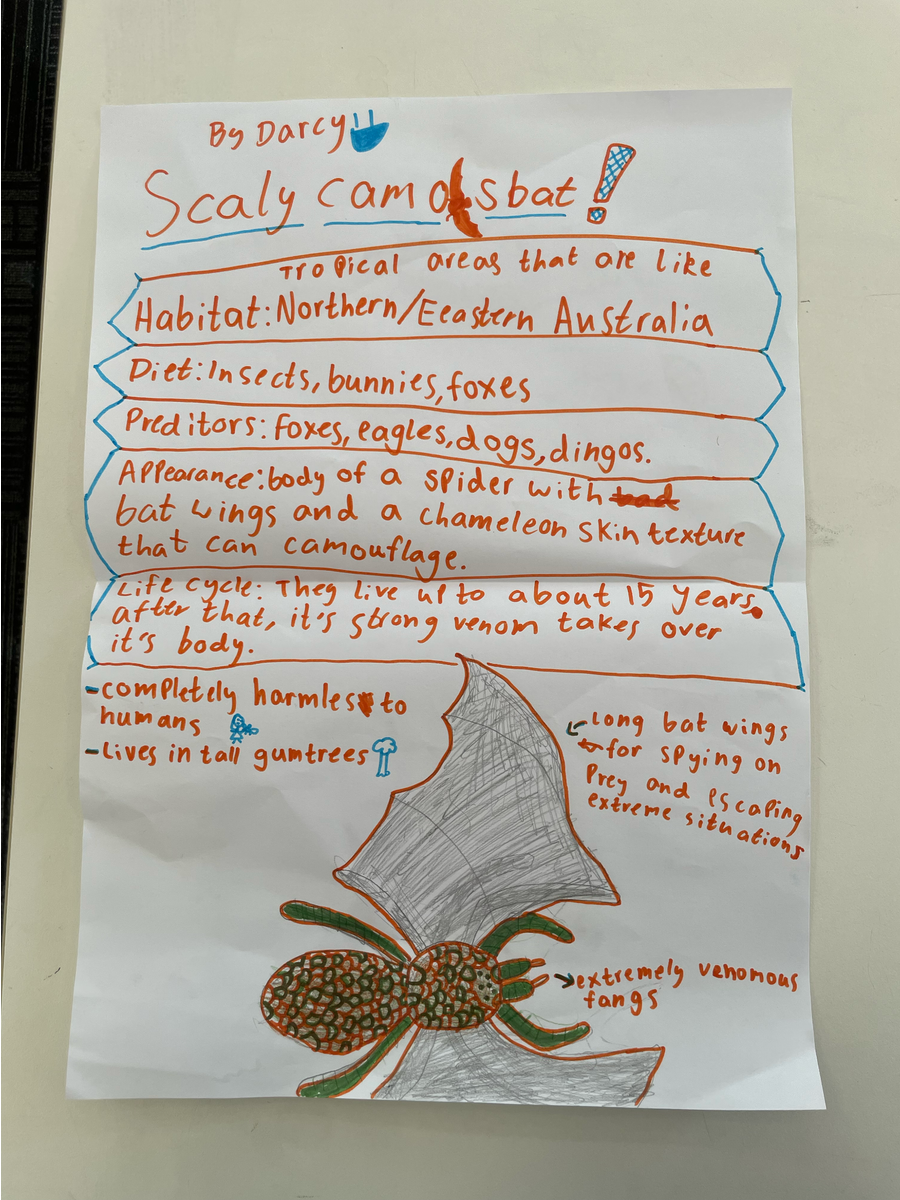 By Darcy
Scaly camo sbat!
Tropical areas that are like
Habitat: Northern/Eeastern Australia
Diet: Insects, bunnies, foxes
Preditors: foxes, eagles, dogs, dingos.
Appearance: body of a spider with bad
bat wings and a chameleon skin texture
that can camouflage.
Life cycle: They live up to about 15 years.
after that, it's strong venom takes over
it's body.
-completely harmles to
humans
-lives in tall gumtrees
long bat wings
for spying on
prey and escaping
extreme situations
extremely venomous
fangs